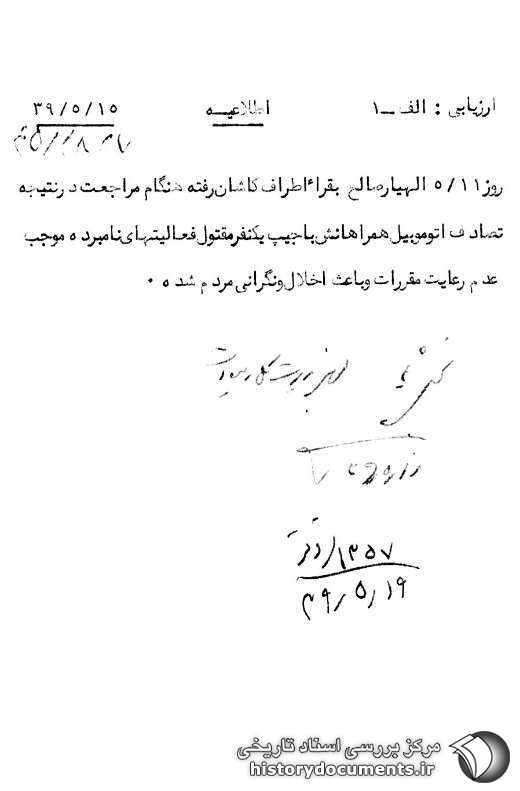 ارزیابی : الف ـ ۱ اطلاعیـــه ۳۹/۵/۱۵
روز ۵/۱۱ الهیارصالح بقراء اطراف کاشان رفته هنگام مراجعت درنتیجه
تصادف اتوموبیل همراهانش باجیپ یکنفرمقتول فعالیتهای نامبرده موجب
عدم رعایت مقررات وباعث اخلال ونگرانی مردم شده ۰
۱۳۵۷
۳۹/۵/۱۹
مرکز بررسی اسناد تاریخی
historydocuments.ir